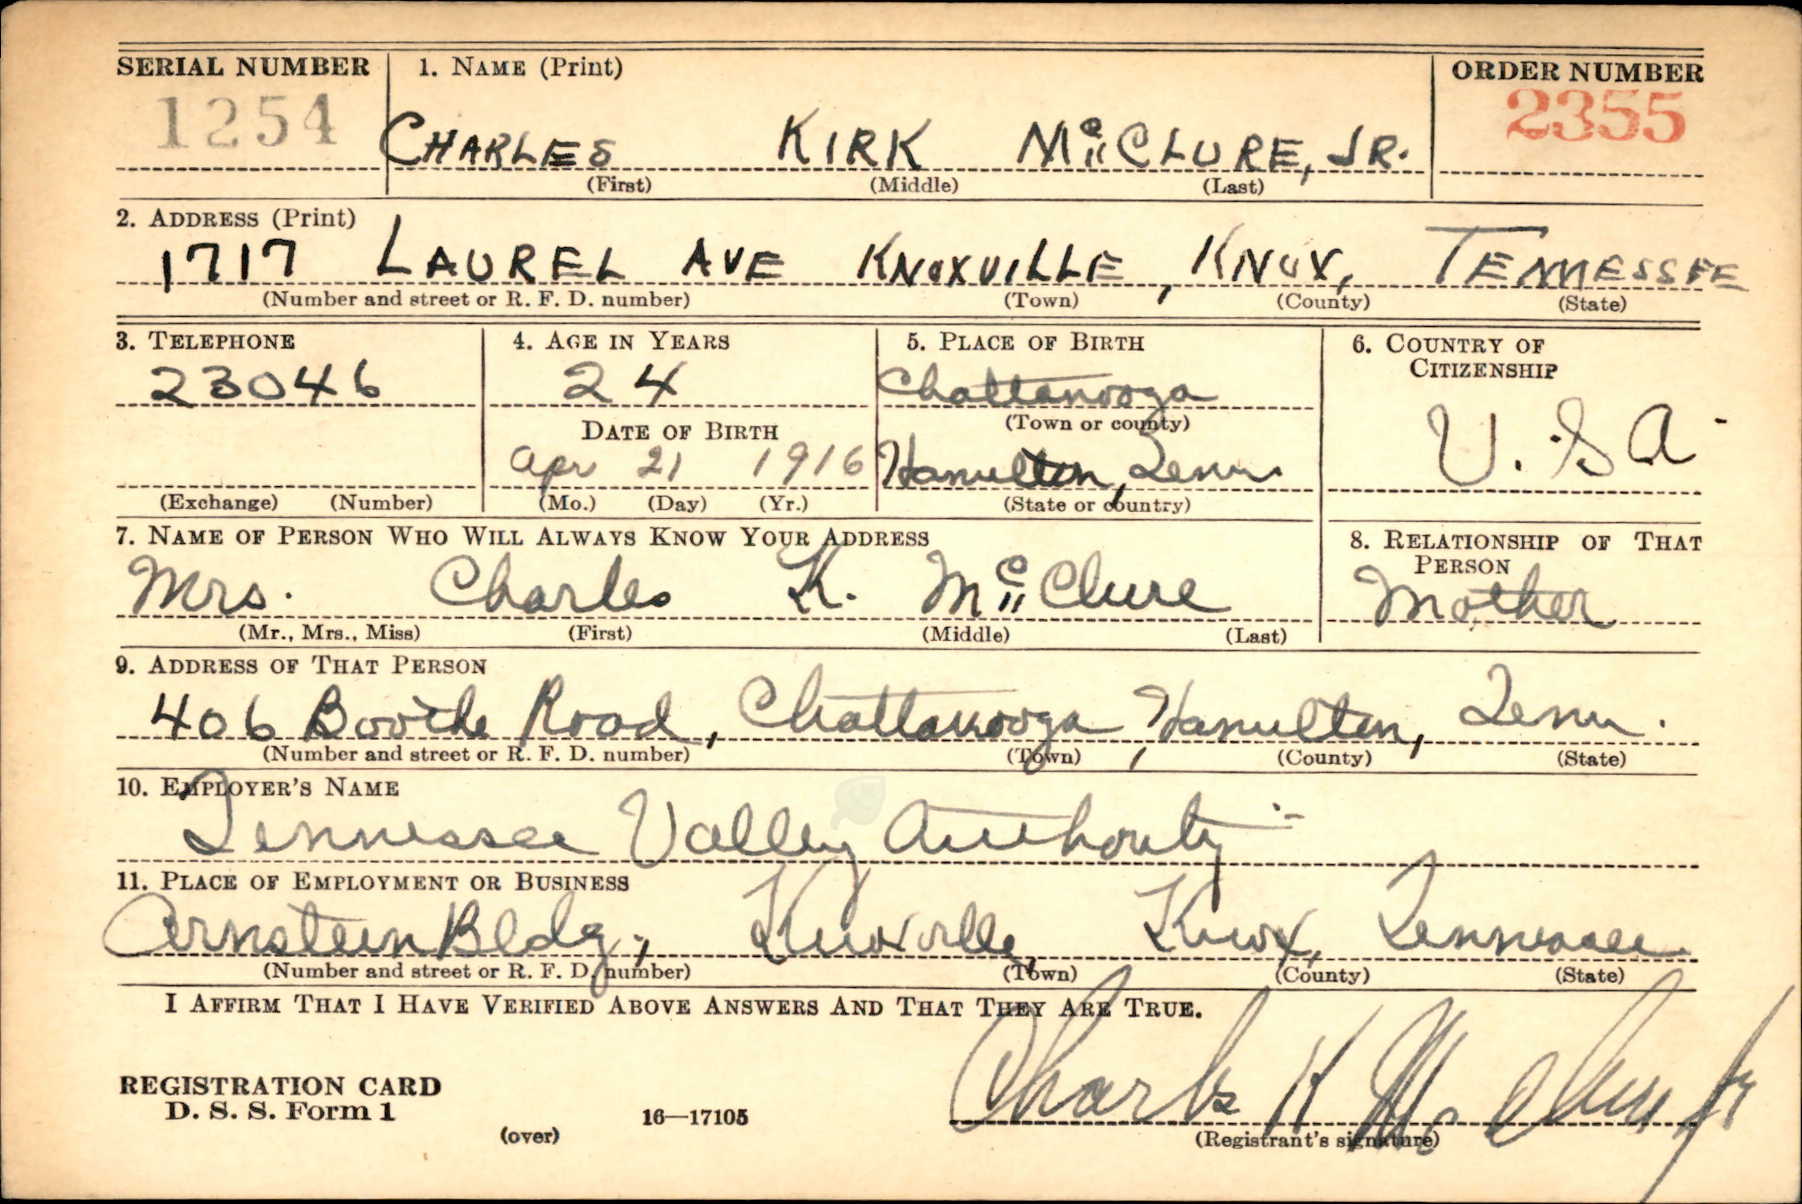 SERIAL NUMBER 1. NAME (Print) ORDER NUMBER
1254 CHARLES KIRK McCLURE, JR. 2355
(First) (Middle) (Last)
2. ADDRESS (Print)
1717 LAUREL AVE KNOXVILLE, KNOX, TENNESSEE
(Number and street or R. F. D. number) (Town) (County) (State)
3. TELEPHONE 4. AGE IN YEARS 5. PLACE OF BIRTH 6. COUNTRY OF CITIZENSHIP
23046 24 Chattanooga
(Town or county)
DATE OF BIRTH U.S.A.
Apr 21 1916 Hamilton, Tenn
(Exchange) (Number) (Mo.) (Day) (Yr.) (State or country)
7. NAME OF PERSON WHO WILL ALWAYS KNOW YOUR ADDRESS 8. RELATIONSHIP OF THAT PERSON
Mrs. Charles K. McClure Mother
(Mr., Mrs., Miss) (First) (Middle) (Last)
9. ADDRESS OF THAT PERSON
406 Boothe Road, Chattanooga, Hamilton, Tenn.
(Number and street or R. F. D. number) (Town) (County) (State)
10. EMPLOYER'S NAME
Tennessee Valley Authority
11. PLACE OF EMPLOYMENT OR BUSINESS
Arnstein Bldg., Knoxville, Knox, Tennessee
(Number and street or R. F. D. number) (Town) (County) (State)
I AFFIRM THAT I HAVE VERIFIED ABOVE ANSWERS AND THAT THEY ARE TRUE.
REGISTRATION CARD
D. S. S. Form 1 16—17105 Charles K McClure Jr
(over) (Registrant's signature)